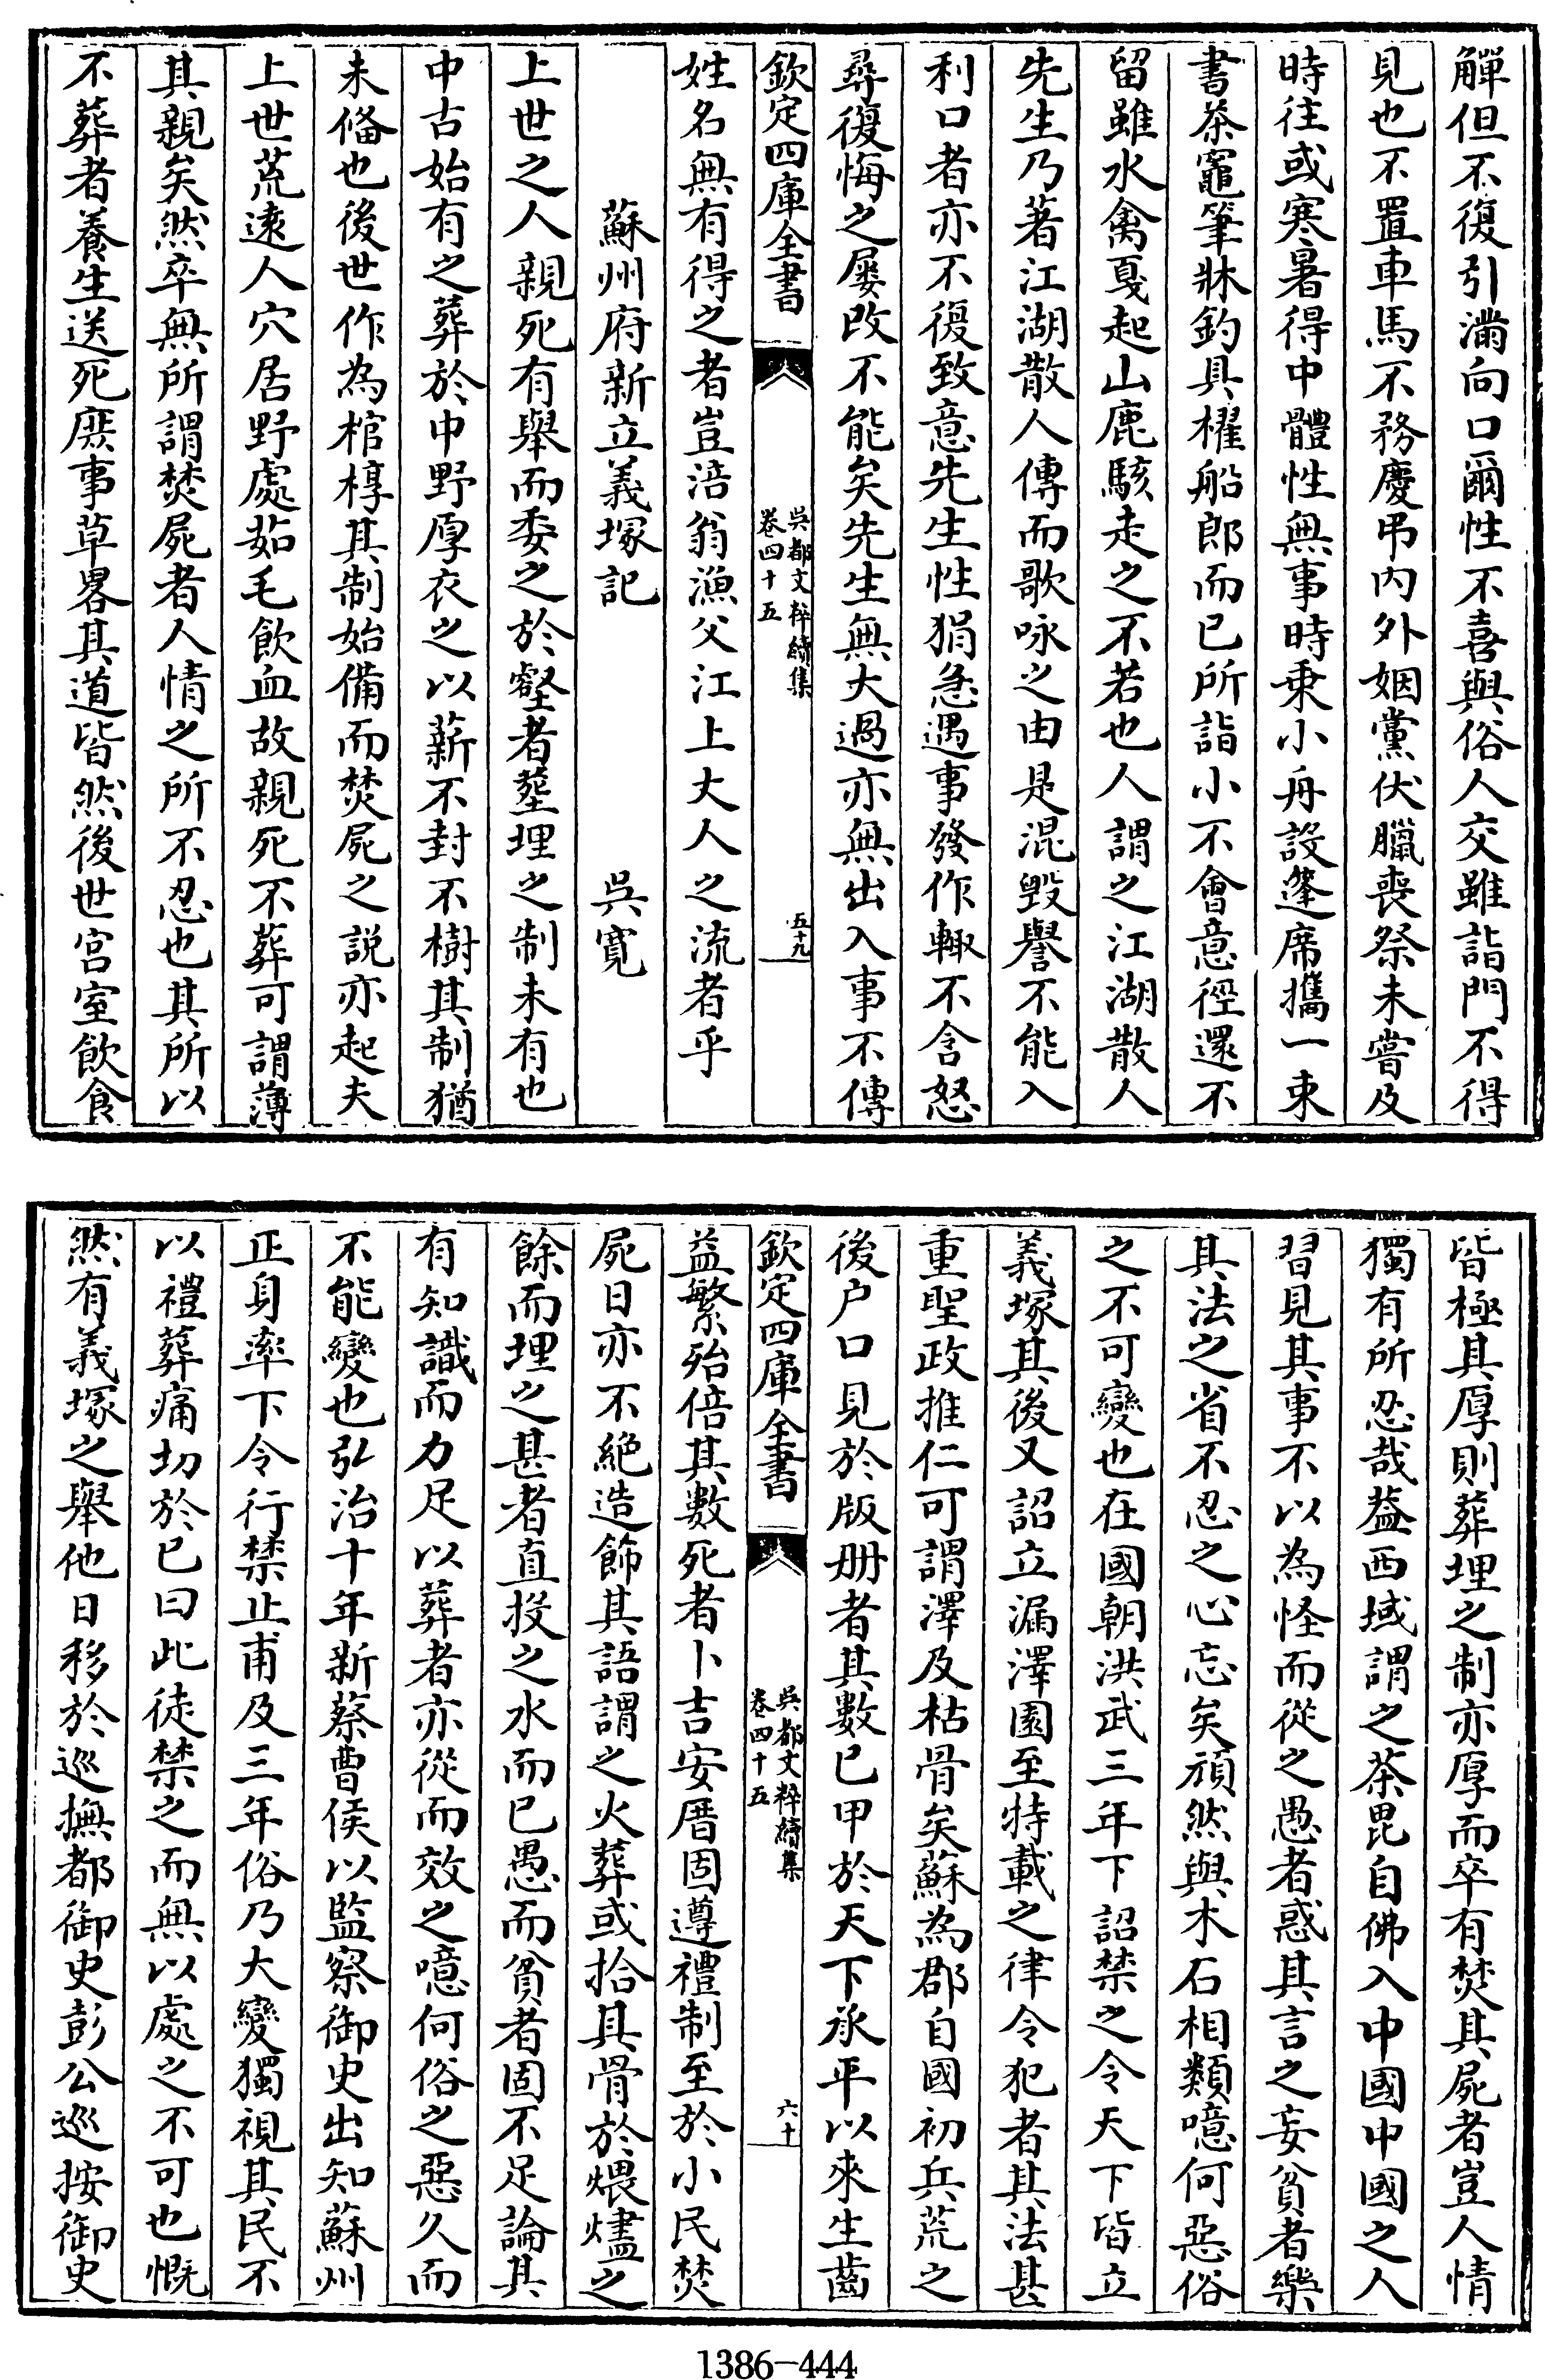 觶但不復引滿向口爾性不喜與俗人交雖詣門不得
見也不置車馬不務慶弔內外姻黨伏臘喪祭未嘗及
時往或寒暑得中體性無事時乗小舟設篷席攜一束
書茶竈筆牀釣具櫂船郎而已所詣小不會意徑還不
留雖水禽戛起山鹿駭走之不若也人謂之江湖散人
先生乃著江湖散人傳而歌咏之由是混毀譽不能入
利口者亦不復致意先生性狷急遇事發作輒不含怒
尋復悔之屢改不能矣先生無大過亦無出入事不傳
欽定四庫全書
吳都文粹續集
卷四十五
五十九
姓名無有得之者豈涪翁漁父江上丈人之流者乎
蘇州府新立義塚記
吳寛
上世之人親死有舉而委之於壑者塟埋之制未有也
中古始有之葬於中野厚衣之以薪不封不樹其制猶
未偹也後世作為棺椁其制始備而焚屍之說亦起夫
上世荒逺人穴居野處茹毛飲血故親死不葬可謂薄
其親矣然卒無所謂焚屍者人情之所不忍也其所以
不葬者養生送死庶事草畧其道皆然後世宫室飲食
皆極其厚則葬埋之制亦厚而卒有焚其屍者豈人情
獨有所忍哉葢西域謂之荼毘自佛入中國中國之人
習見其事不以為怪而從之愚者惑其言之妄貧者樂
其法之省不忍之心忘矣頑然與木石相類噫何惡俗
之不可變也在國朝洪武三年下詔禁之令天下皆立
義塚其後又詔立漏澤園至特載之律令犯者其法甚
重聖政推仁可謂澤及枯骨矣蘇為郡自國初兵荒之
後户口見於版册者其數已甲於天下承平以來生齒
欽定四庫全書
吳都文粹續集
卷四十五
六十
益繁殆倍其數死者卜吉安厝固遵禮制至於小民焚
屍日亦不絶造飾其語謂之火葬或拾其骨於煨燼之
餘而埋之甚者直投之水而已愚而貧者固不足論其
有知識而力足以葬者亦從而效之噫何俗之惡久而
不能變也弘治十年新蔡曹侯以監察御史出知蘇州
正身率下令行禁止甫及三年俗乃大變獨視其民不
以禮葬痛切於已曰此徒禁之而無以處之不可也慨
然有義塚之舉他日移於巡撫都御史彭公巡按御史
1386-444